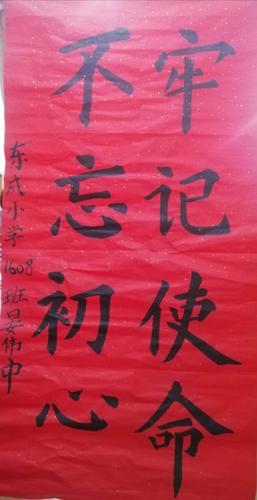 牢记使命
不忘初心
东成小学1608班晏伟中